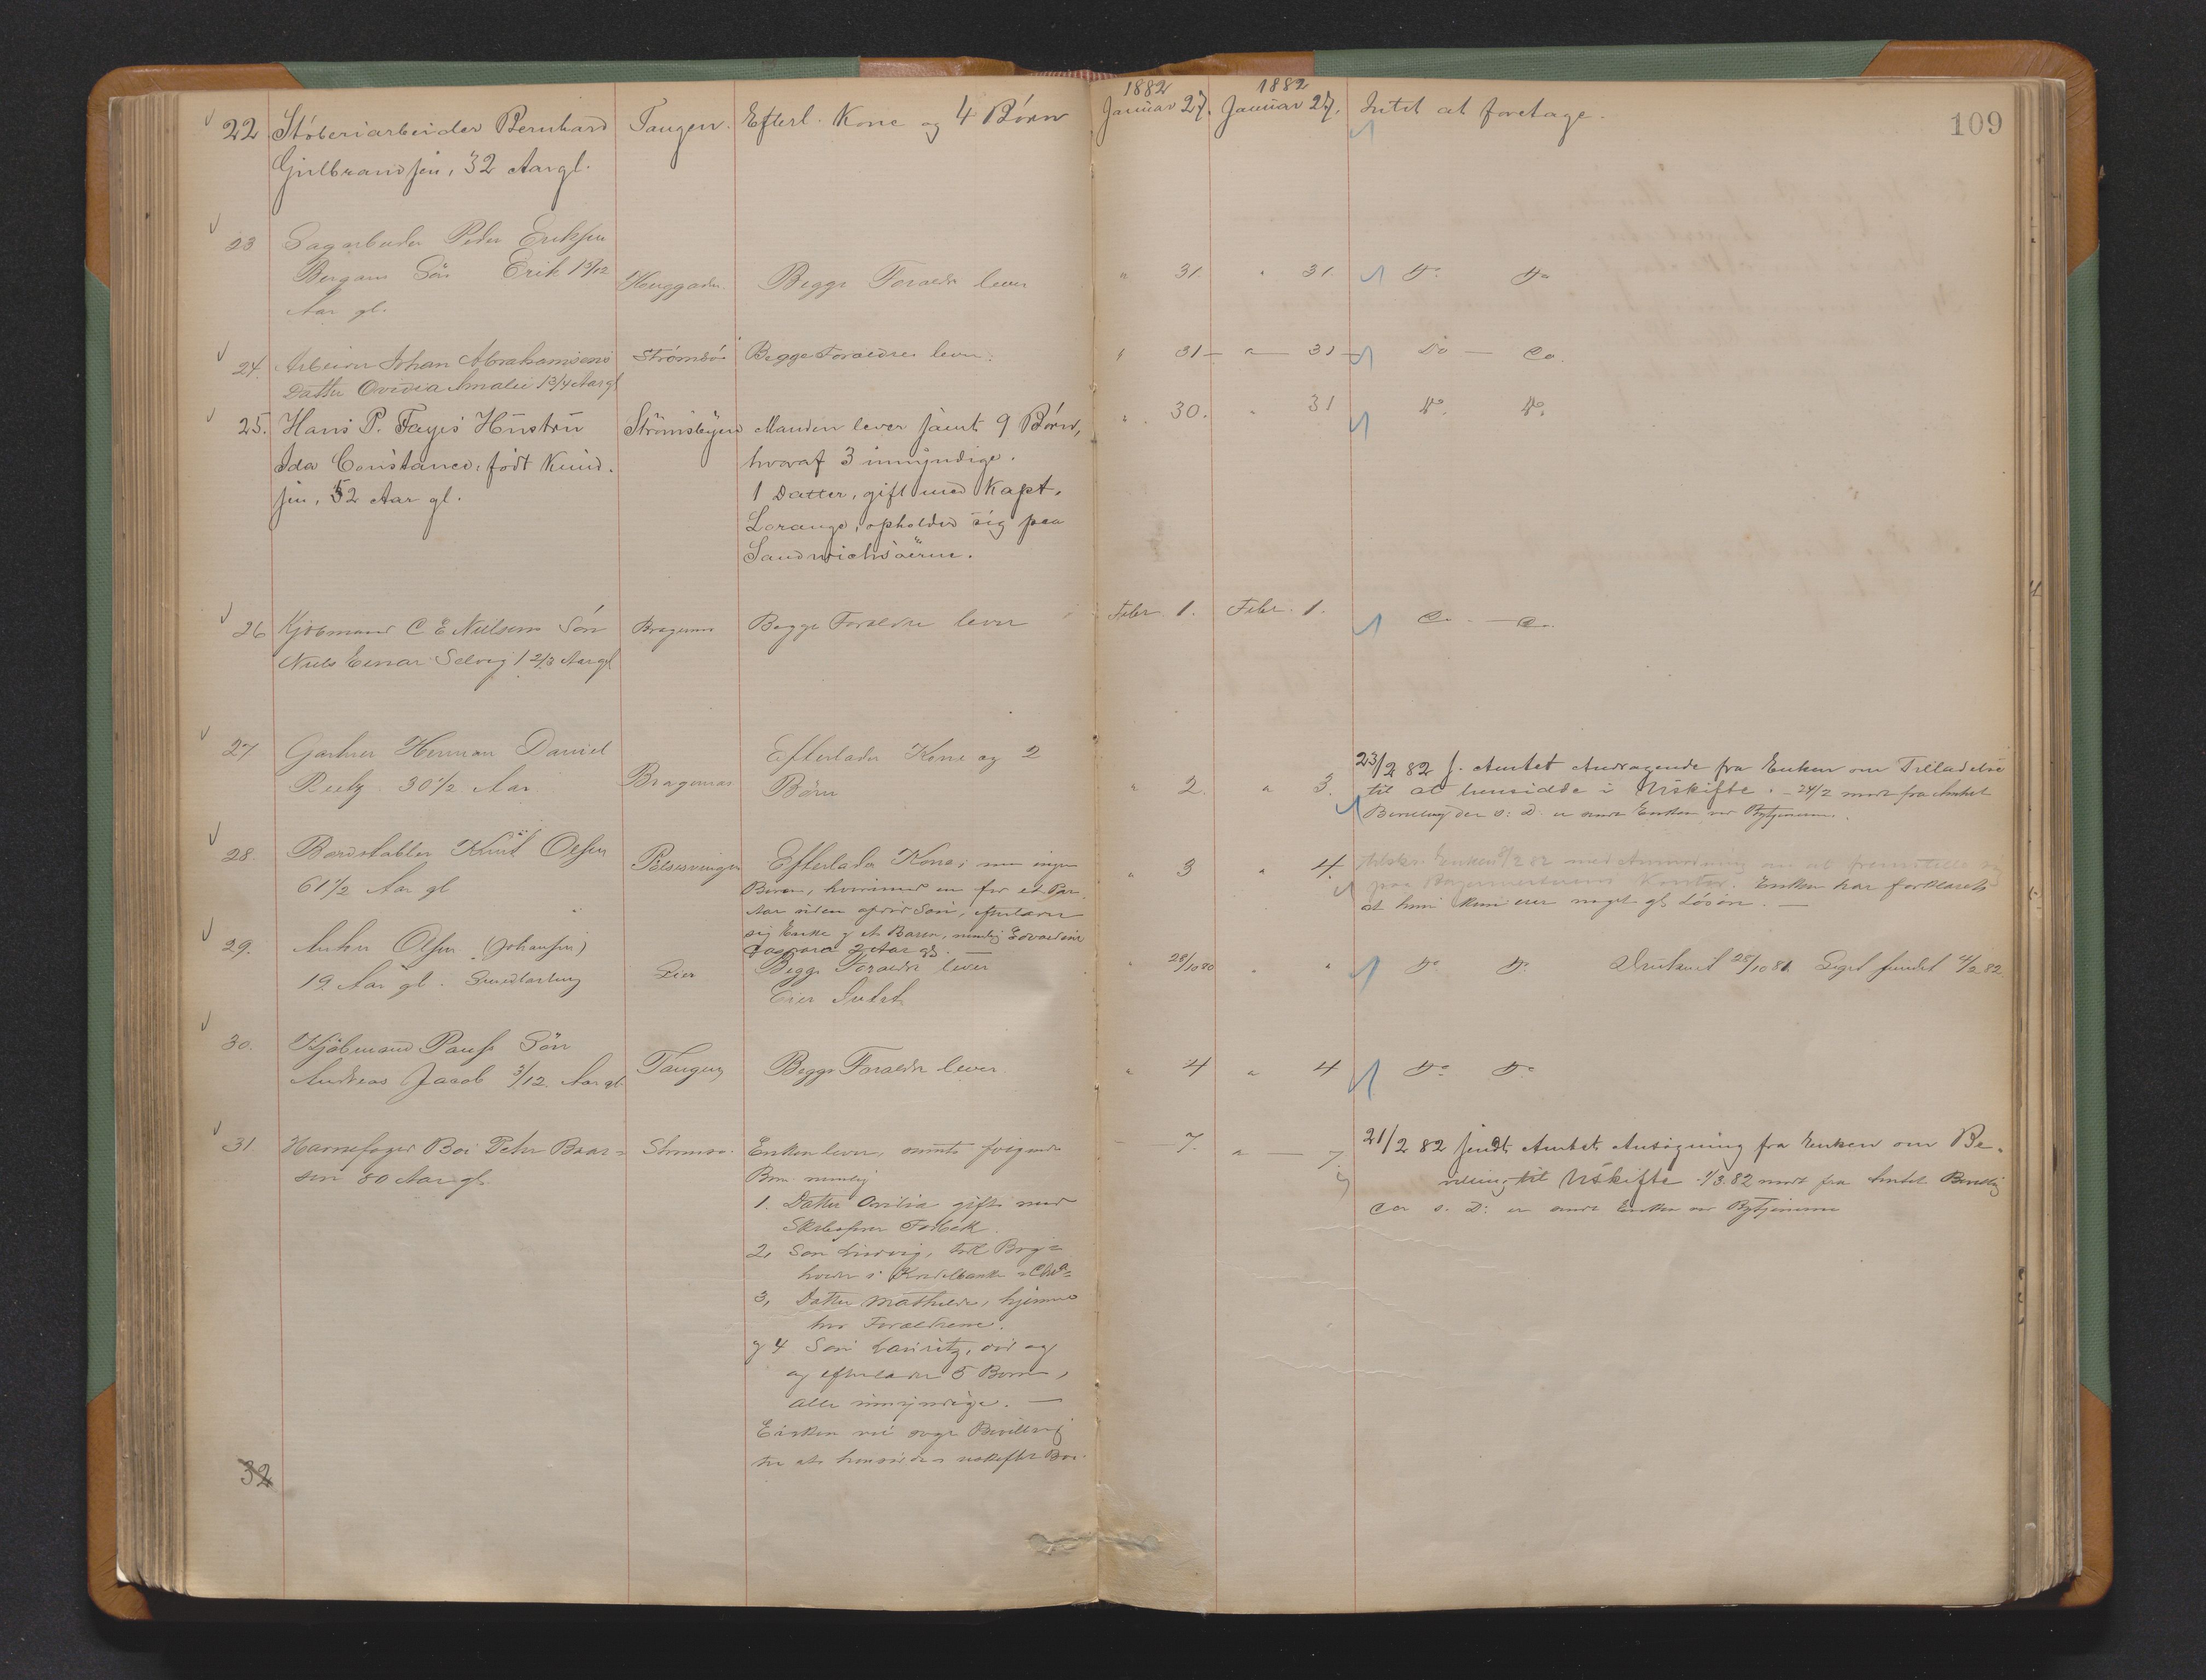 1882 1882
109
22 Stóberiarbeider Bernhard Tangen. Efterl. Kone og 4 Børn Januar 27. Januar 27. Intet at foretage.
Gulbrandsen, 32 Aargl.
23 Sagarbeider Peder Eriksen
Søn Erik 1 3/12 Begge Foraeldre lever " 31. " 31. Do Do
Aar gl.
24. Arbeider Johan Abrahamsens Strømsø Begge Foraeldre lever. 31 — " — 31 — Do — Do.
Datter Ovidia Amalie 1 3/4 Aargl
25. Hans P. Fayes Hustru Manden lever samt 9 Børn, " 30. " 31 Do. Do.
Ida Constance, født Knud- hvoraf 3 umyndige.
sen, 52 Aar gl. 1 Datter, gift med Kapt.
Lorange, opholder sig paa
Sandwichsøerne.
26 Kjøbmand C E Nielsens Søn Bragernes Begge Foraeldre lever Febr. 1. Febr. 1. Do. — Do.
Niels Einar Selvig 1 2/3 Aargl
27 Gartner Herman Daniel Efterlader Kone og 2 23/2 82 s. Amtet Andragende fra Enken om Tilladelse
30 1/2 Aar Bragernes Børn " 2. " 3. til at hensidde i Uskifte. — 24/2 modt fra Amtet
Bevilling der s: D. er sendt Enken ved Bytjeneren.
28. Bordstabler Knut Olsen Efterlader Kone; men ingen " 3 " 4. Enken 8/2 82 med Anmodning om at fremstille sig
61 1/2 Aar gl Børn, hvorimod en for et Par paa Kontor. Enken har forklaret
Aar siden afdød Søn, efterlader at hun kun eier noget gl Løsøre. —
sig Enke og et Barn, nemlig Edvardine
2 Aar gl.
29. Anton Olsen (Johansen) Lier Begge Foraeldre lever " 28/10 80 " " Do Do. Druknet 28/10 81. Liget fundet 4/2 82
19 Aar gl. Eier Intet
30. Kjøbmand Paus's Søn
Andreas Jacob 3/12 Aar gl Tangen Begge Foraeldre lever " 4 " 4 Do Do
31. Havnefoged Boi Peter Baar- Strømsø. Enken lever, samt følgende — 7. " — 7. 21/2 82 sendt Amtet Ansøgning fra Enken om Be-
sen 80 Aar gl. Børn nemlig villing til Uskifte. 1/3.82 modt fra Amtet Bevillig
1. Datter gift med der s. D: er sendt Enken ved Bytjeneren
Skibsfører
2, Søn Ludvig, Bog-
holder i Kreditbanken i Chra
3, Datter Mathilde, hjemme
hos Foraeldrene.
og 4 Søn Lauritz, død og
og efterlader 5 Børn,
alle umyndige. —
Enken vil søge Bevilling
til at hensidde i uskiftet Bo.
32